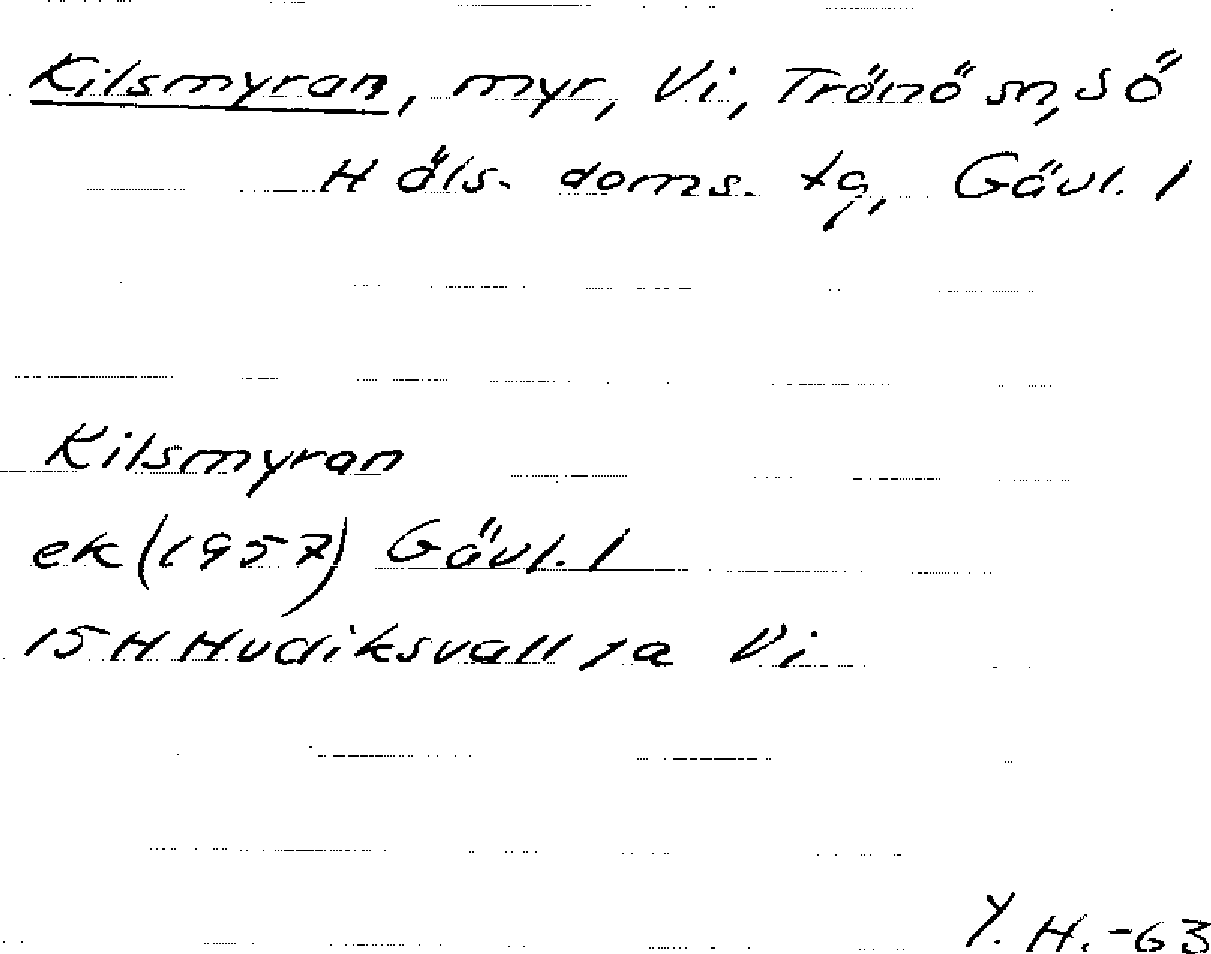 Kilsmyran, myr, Vi, Trönö sn, S ö
Häls. doms. tg, Gävl. l
Kilsmyran
ek (1957) Gävl. l
15 H Hudiksvall 1a Vi
Y. H. -63